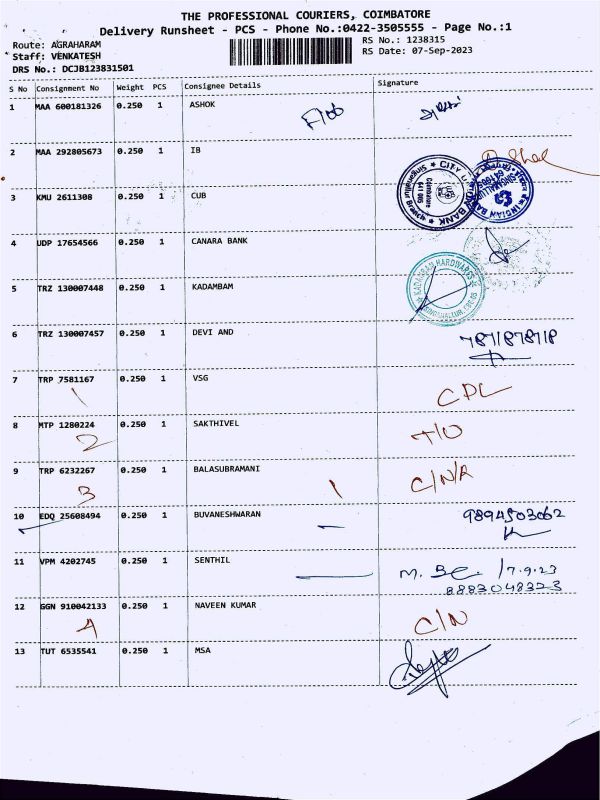 THE PROFESSIONAL COURIERS, COIMBATORE
Delivery Runsheet - PCS - Phone No.:0422-3505555 - Page No.:1
Route: AGRAHARAM
Staff: VENKATESH
DRS No.: DCJB123831501
RS No.: 1238315
RS Date: 07-Sep-2023
S No Consignment No Weight PCS Consignee Details Signature
1 MAA 600181326 0.250 1 ASHOK
2 MAA 292805673 0.250 1 IB
3 KMU 2611308 0.250 1 CUB
CITY UNION BANK
Singanallur
Coimbatore
641 005
INDIAN BANK
4 UDP 17654566 0.250 1 CANARA BANK
5 TRZ 130007448 0.250 1 KADAMBAM
KADAMBAM HARDWARES
SINGANALLUR, CBE-05
6 TRZ 130007457 0.250 1 DEVI AND
7871878718
7 TRP 7581167 0.250 1 VSG CPL
1
8 MTP 1280224 0.250 1 SAKTHIVEL T/O
2
9 TRP 6232267 0.250 1 BALASUBRAMANI C/N/A
3 1
10 EDQ 25608494 0.250 1 BUVANESHWARAN 9894503062
11 VPM 4202745 0.250 1 SENTHIL 7.9.23
8883048323
12 GGN 910042133 0.250 1 NAVEEN KUMAR C/N
4
13 TUT 6535541 0.250 1 MSA